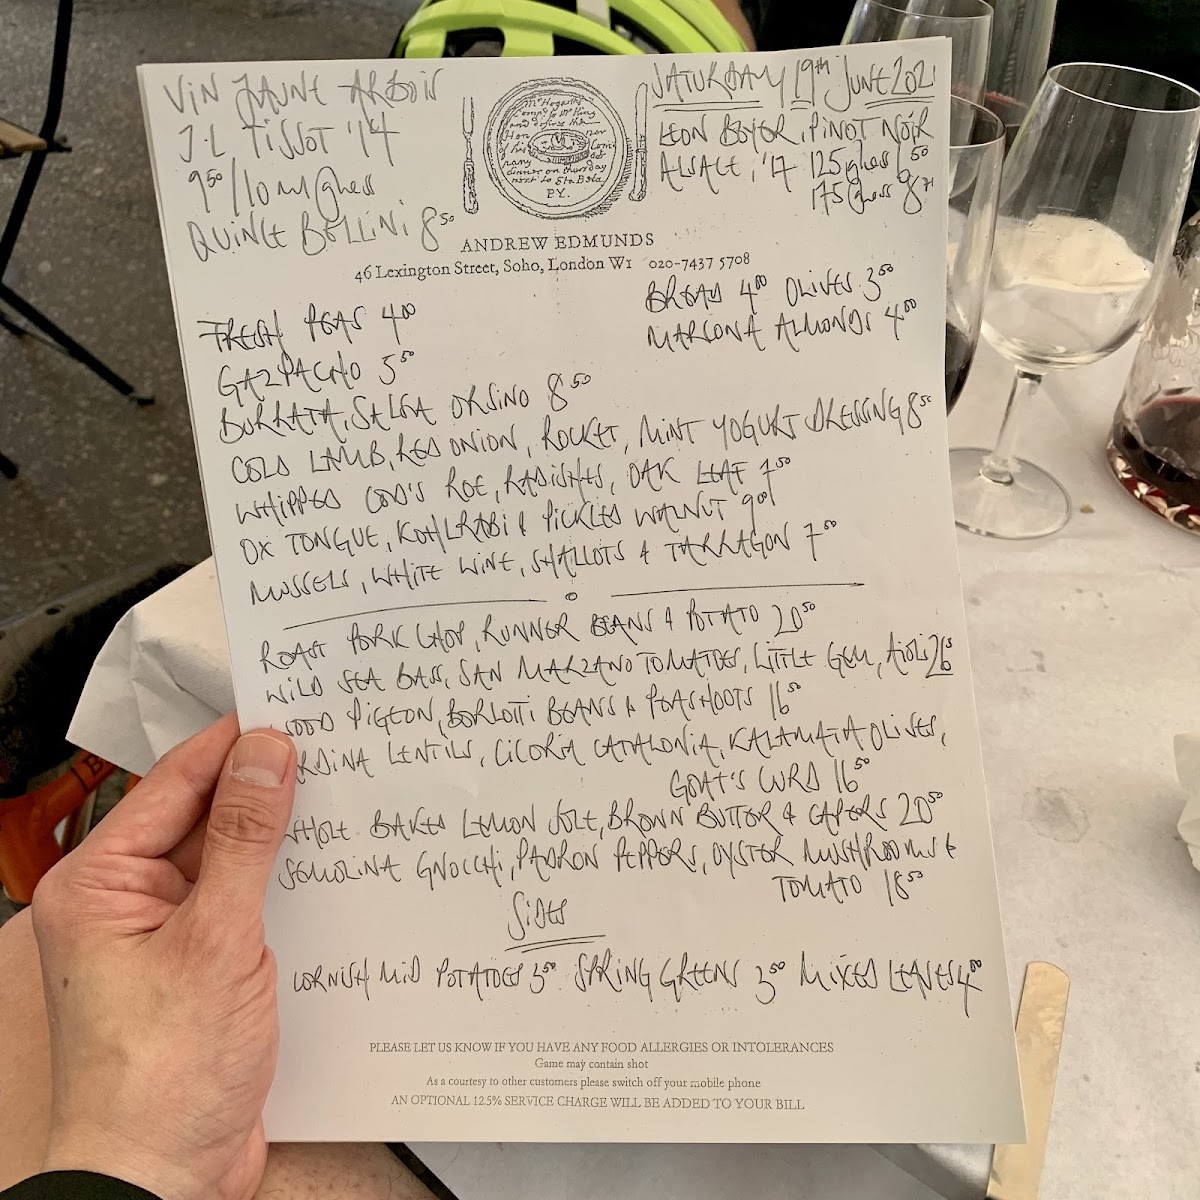 VIN JAUNE ARBOIS
J.L TISSOT '14
9⁵⁰/10 ml glass
QUINCE BELLINI 8⁵⁰
SATURDAY 19th JUNE 2021
LEON BEYER, PINOT NOIR
ALSACE, '17 125 glass 6⁵⁰
175 glass 8⁷⁵
Mr Hogarths
Compts to Mr King
and desires the
Hon or
of his Com
pany at
dinner on thursday
next to Eta Beta
PY.
ANDREW EDMUNDS
46 Lexington Street, Soho, London W1 020-7437 5708
BREAD 4⁰⁰ OLIVES 3⁵⁰
MARCONA ALMONDS 4⁰⁰
FRESH PEAS 4⁰⁰
GAZPACHO 5⁵⁰
BURRATA, SALSA ORSINO 8⁵⁰
COLD LAMB, RED ONION, ROCKET, MINT YOGURT DRESSING 8⁵⁰
WHIPPED COD'S ROE, RADISHES, OAK LEAF 7⁵⁰
OX TONGUE, KOHLRABI & PICKLED WALNUT 9⁰⁰
MUSSELS, WHITE WINE, SHALLOTS & TARRAGON 7⁵⁰
ROAST PORK CHOP, RUNNER BEANS & POTATO 20⁵⁰
WILD SEA BASS, SAN MARZANO TOMATOES, LITTLE GEM, AIOLI 26⁵⁰
WOOD PIGEON, BORLOTTI BEANS & PEASHOOTS 16⁵⁰
RDINA LENTILS, CICORIA CATALONIA, KALAMATA OLIVES,
GOAT'S CURD 16⁵⁰
WHOLE BAKED LEMON SOLE, BROWN BUTTER & CAPERS 20⁵⁰
SEMOLINA GNOCCHI, PADRON PEPPERS, OYSTER MUSHROOMS &
TOMATO 18⁵⁰
SIDES
CORNISH MID POTATOES 3⁵⁰ SPRING GREENS 3⁵⁰ MIXED LEAVES 4⁰⁰
PLEASE LET US KNOW IF YOU HAVE ANY FOOD ALLERGIES OR INTOLERANCES
Game may contain shot
As a courtesy to other customers please switch off your mobile phone
AN OPTIONAL 12.5% SERVICE CHARGE WILL BE ADDED TO YOUR BILL